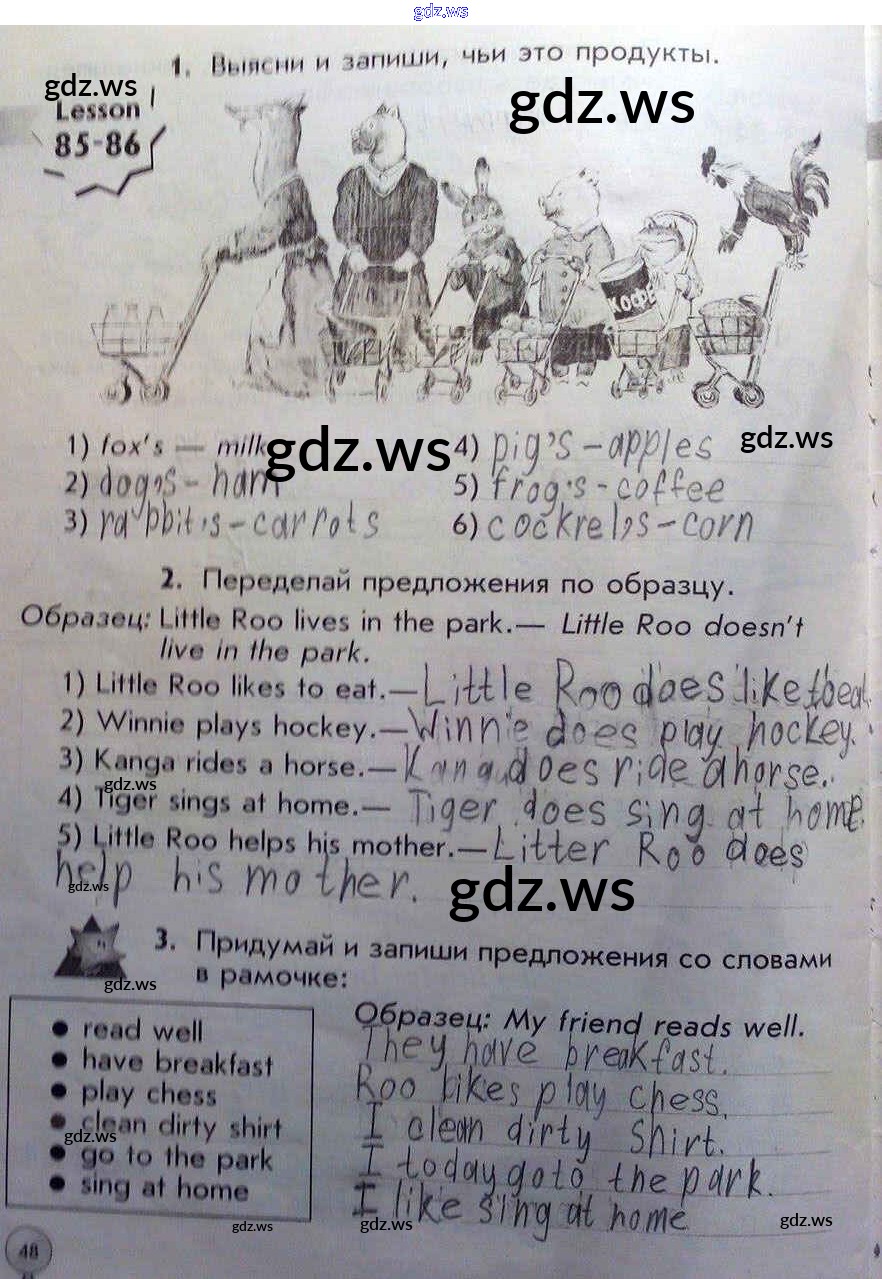 gdz.ws
1. Выясни и запиши, чьи это продукты.
gdz.ws
gdz.ws
Lesson
85-86
КОФЕ
1) fox's — milk
gdz.ws
4) pig's - apples
gdz.ws
2) dog's - ham
5) frog's - coffee
3) rabbit's - carrots
6) cockrel's - corn
2. Переделай предложения по образцу.
Образец: Little Roo lives in the park.— Little Roo doesn't
live in the park.
1) Little Roo likes to eat.— Little Roo does like to eat.
2) Winnie plays hockey.— Winnie does play hockey.
3) Kanga rides a horse.— Kanga does ride a horse.
gdz.ws
4) Tiger sings at home.— Tiger does sing at home.
5) Little Roo helps his mother.— Litter Roo does
help his mother.
gdz.ws
gdz.ws
3. Придумай и запиши предложения со словами
в рамочке:
gdz.ws
Образец: My friend reads well.
• read well
They have breakfast.
• have breakfast
Roo likes play chess.
• play chess
I clean dirty shirt.
• clean dirty shirt
gdz.ws
I today go to the park.
• go to the park
I like sing at home
• sing at home
gdz.ws
gdz.ws
gdz.ws
48